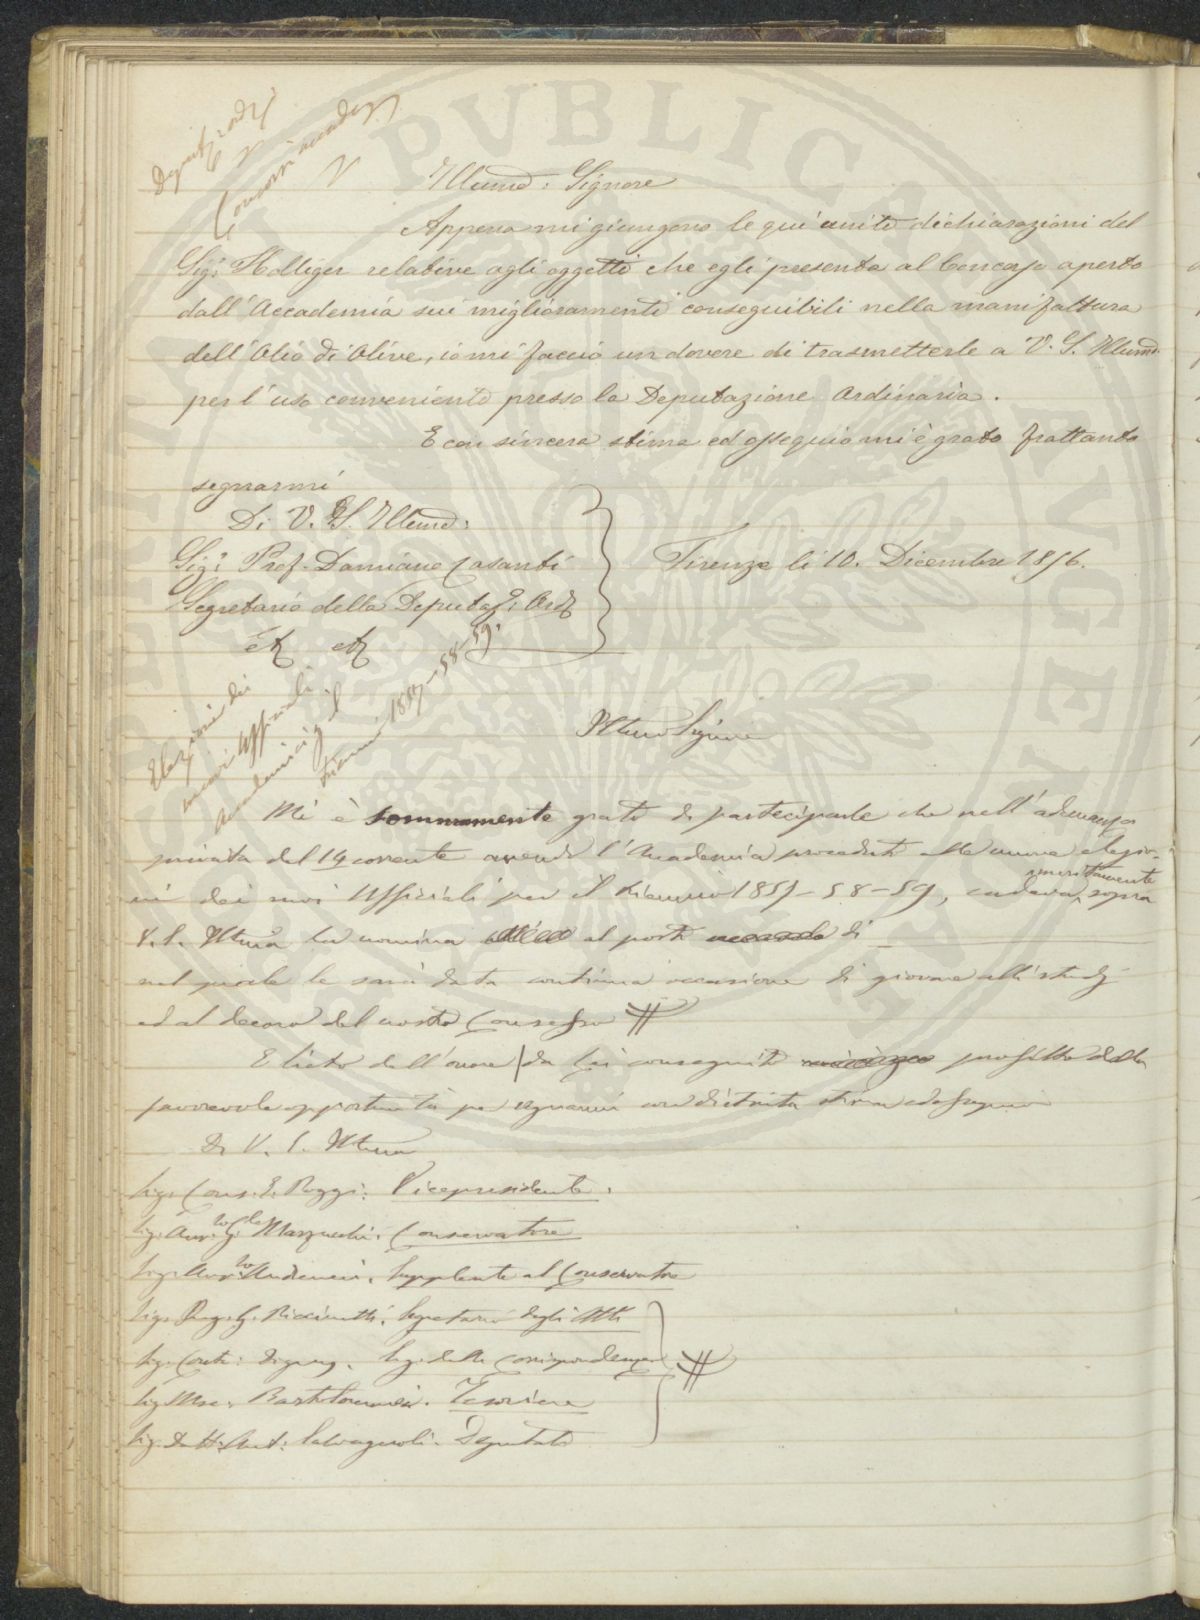 Deputaz. ordz.
Concorsi accadcj
Illumo: Signore
Appena mi giungono le qui unite dichiarazioni del
Sigr: Holliger relative agli oggetti che egli presenta al Concorso aperto
dall'Accademia sui miglioramenti conseguibili nella manifattura
dell'Olio di Olive, io mi faccio un dovere di trasmetterle a V. S. Illumo.
per l'uso conveniente presso la Deputazione Ordinaria.
E con sincera stima ed ossequio mi è grato frattanto
segnarmi
Di V. S. Illumo:
Sigr: Prof. Damiano Casanti
Segretario della Deputazne: Ord.
&c &c
Firenze li 10. Dicembre 1856.
Elezioni dei
nuovi Uffiziali
Accademici pel
triennio 1857-58-59.
Illmo Signore
Mi è sommamente grato di parteciparle che nell'adunanza
privata del 14 corrente avendo l'Accademia proceduto alle nuove elezio-
ni dei suoi Uffiziali per il triennio 1857-58-59, cadeva meritamente sopra
V. S. Illma la nomina al posto di
nel quale le sarà data continua occasione di giovare alli studj
ed al decoro del nostro Consesso #
E lieto dell'onore da Lei conseguito profitto della
favorevole opportunità per segnarmi con distinta stima ed ossequio
Di V. S. Illma
Sig. Cons. E. Poggi: Vicepresidente.
Sig. Avv. Marzucchi: Conservatore
Sig. Avv. Andreucci. Supplente al Conservatore
Sig. G. Ricciardi. Segretario degli Atti
Sig. Conte: Digny. Seg. delle Corrispondenze #
Sig. Mse. Bartolommei. Tesoriere
Sig. Dott. Ant: Salvagnoli. Deputato
PVBLICAE